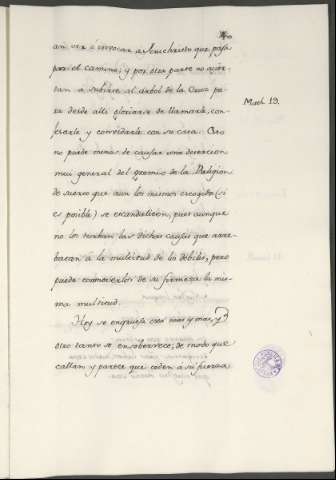 an ver e invocar a Jesuchristo que pasa
por el camino; y por otra parte no acier-
tan a subirse al arbol de la Cruz pa-
ra desde alli gloriarse de llamarle, con-
fesarle y convidarle con su casa. Esto
no puede menos de causar una desercion
mui general del gremio de la Religion
de suerte que aun los mismos escogidos (si
es posible) se escandalicen, pues aunque
no los tienten las dichas cosas que arre-
batan a la multitud de los debiles, pero
puede conmoverlos de su firmeza la mis-
ma multitud.
Hoy se engruesa esta mas y mas, y
otro tanto se ensoberbece; de modo que
callan, y parece que ceden a su fuerza
Math. 19.